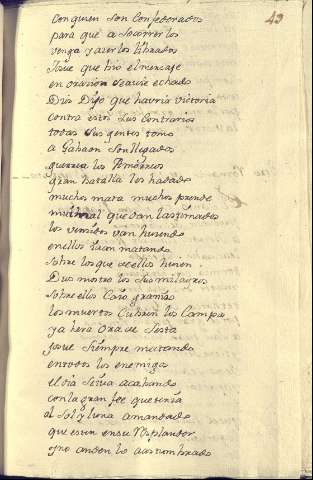 43
Con quien son Confederados
para que a Socorrer los
venga y a ser los librados
Josue que hio el mensaje
en orasion seavie echado
Dios Dijo que havria victoria
contra estos sus Contrarios
todas sus gentes tomo
a Gabaon son llegados
los Amorreos
gran batalla les ha dado
muchos mata muchos prende
mui mal que dan lastimados
los vensidos van huiendo
en ellos van matando
sobre los que de ellos huien
Dios mostro los sus milagros
sobre ellos Caio graniso
los muertos Cubren los Campos
ya hera Ora de Sesta
josue siempre matando
en todos los enemigos
el dia se iva acabando
con la gran fee que tenia
al Sol y luna a mandado
que esten en su Resplandor